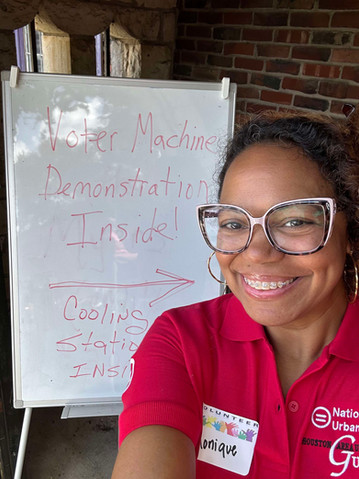 Voter Machine
Demonstration
Inside!
Cooling
Station
INSI
VOLUNTEER
Monique
Nation
Urban
HOUSTON AREA
Gu